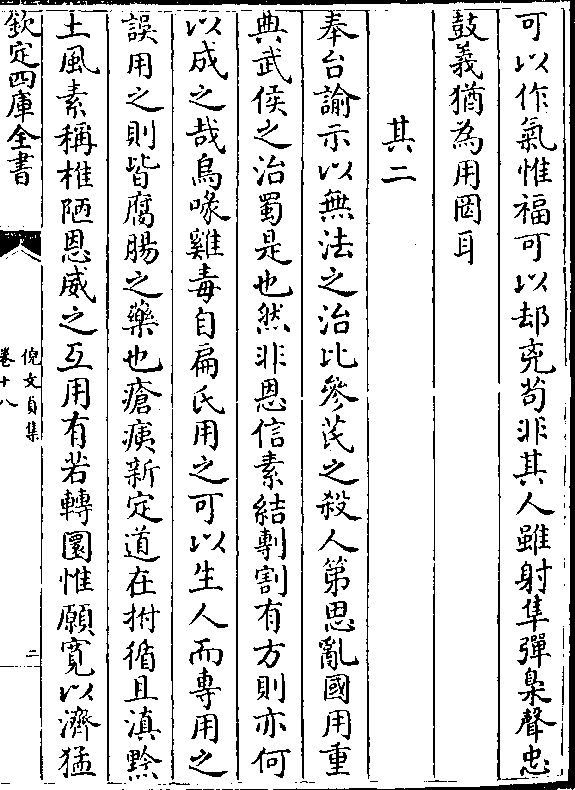 可以作氣惟福可以却兇茍非其人雖射隼彈梟聲忠
鼓義猶為用罔耳
其二
奉台諭示以無法之治比參芪之殺人第思亂國用重
典武侯之治蜀是也然非恩信素結剸割有方則亦何
以成之哉烏喙雞毒自扁氏用之可以生人而專用之
誤用之則皆腐腸之藥也瘡痍新定道在拊循且滇黔
土風素稱椎陋恩威之互用有若轉圜惟願寛以濟猛
欽定四庫全書
倪文貞集
卷十八
二